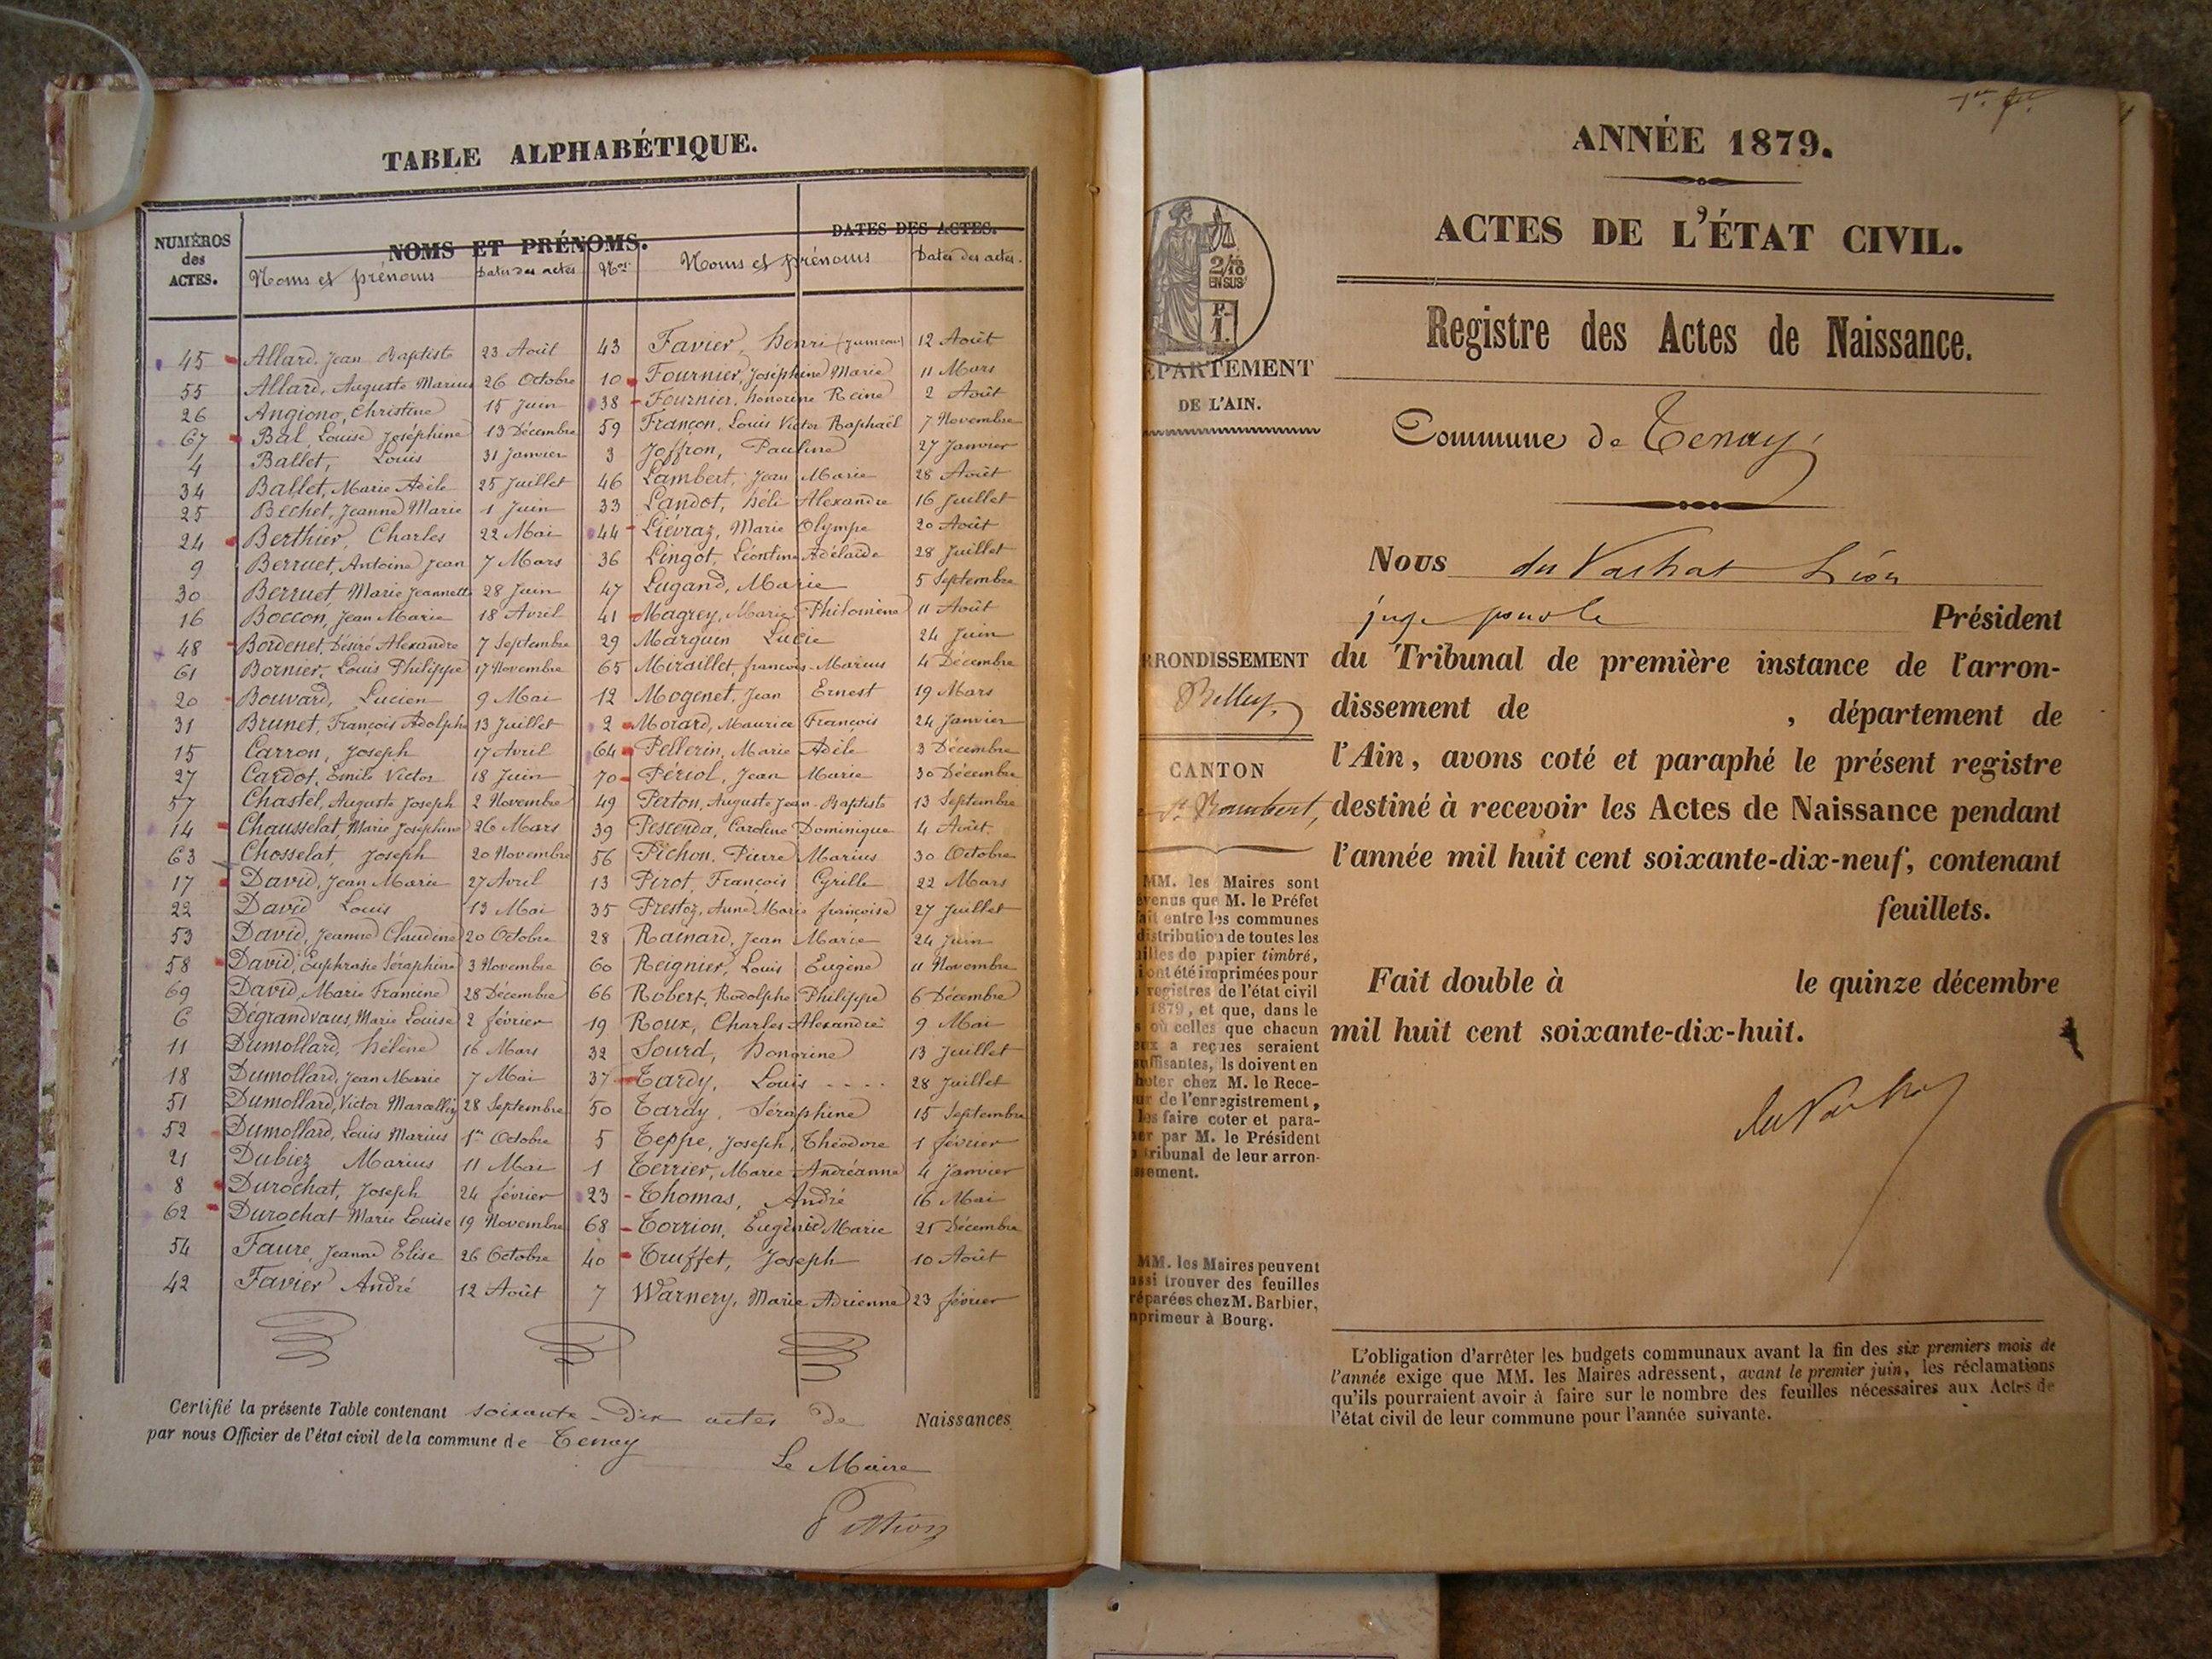 TABLE ALPHABÉTIQUE.
NUMÉROS des ACTES.
NOMS ET PRÉNOMS.
DATES DES ACTES.
Noms et prénoms Dates des actes Nos Noms et prénoms Dates des actes.
45 Allard, Jean Baptiste 23 Août 43 Favier, henri (jumeau) 12 Août
55 Allard, Auguste Marius 26 Octobre 10 Fournier, Joséphine Marie 11 Mars
26 Angiono, Christine 15 Juin 38 Fournier, honorine Reine 2 Août
67 Bal, Louise Joséphine 13 Décembre 59 Françon, Louis Victor Raphaël 7 Novembre
4 Ballet, Louis 31 Janvier 3 Joffron, Pauline 27 Janvier
34 Ballet, Marie Adèle 25 Juillet 46 Lambert, Jean Marie 28 Août
25 Bechet, Jeanne Marie 1 Juin 33 Landot, héli Alexandre 16 Juillet
24 Berthier, Charles 22 Mai 44 Liévraz, Marie Olympe 20 Août
9 Berruet, Antoine Jean 7 Mars 36 Lingot, Léontine Adélaïde 28 Juillet
30 Berruet, Marie Jeannette 28 Juin 47 Lugand, Marie 5 Septembre
16 Boccon, Jean Marie 18 Avril 41 Magrey, Marie Philomène 11 Août
48 Bordenet, Désiré Alexandre 7 Septembre 29 Marguin Lucie 24 Juin
61 Bornier, Louis Philippe 17 Novembre 65 Miraillet, françois-Marius 4 Décembre
20 Bouvard, Lucien 9 Mai 12 Mogenet, Jean Ernest 19 Mars
31 Brunet, François Adolphe 13 Juillet 2 Morard, Maurice François 24 Janvier
15 Carron, Joseph 17 Avril 64 Pellerin, Marie Adèle 3 Décembre
27 Cardot, Emile Victor 18 Juin 70 Périol, Jean Marie 30 Décembre
57 Chastel, Auguste Joseph 2 Novembre 49 Perton, Auguste Jean-Baptiste 13 Septembre
14 Chausselat, Marie Joséphine 26 Mars 39 Pescenda, Caroline Dominique 4 Août
63 Chosselat, Joseph 20 Novembre 56 Pichon, Pierre Marius 30 Octobre
17 David, Jean Marie 27 Avril 13 Pirot, François Cyrille 22 Mars
22 David Louis 13 Mai 35 Prestoz, Anne Marie françoise 27 Juillet
53 David, Jeanne Claudine 20 Octobre 28 Rainard, Jean Marie 24 Juin
58 David, Euphrasie Séraphine 3 Novembre 60 Reignier, Louis Eugène 11 Novembre
69 David, Marie Francine 28 Décembre 66 Robert, Rodolphe Philippe 6 Décembre
6 Dégrandvaux, Marie Louise 2 février 19 Roux, Charles Alexandre 9 Mai
11 Dumollard, hélène 16 Mars 32 Sourd, honorine 13 Juillet
18 Dumollard, Jean Marie 7 Mai 37 Tardy, Louis 28 Juillet
51 Dumollard, Victor Marcellin 28 Septembre 50 Tardy, Séraphine 15 Septembre
52 Dumollard, Louis Marius 1er Octobre 5 Teppe, Joseph Théodore 1 février
21 Dubiez Marius 11 Mai 1 Terrier, Marie Andréanne 4 Janvier
8 Durochat, Joseph 24 février 23 Thomas, André 16 Mai
62 Durochat Marie Louise 19 Novembre 68 Torrion, Eugénie Marie 21 Décembre
54 Faure, Jeanne Elise 26 Octobre 40 Truffet, Joseph 10 Août
42 Favier André 12 Août 7 Warnery, Marie Adrienne 23 février
Certifié la présente Table contenant soixante-dix actes de Naissances
par nous Officier de l'état civil de la commune de Tenay
Le Maire
ANNÉE 1879.
ACTES DE L'ÉTAT CIVIL.
Registre des Actes de Naissance.
2/10 EN SUS
1.
EPARTEMENT
DE L'AIN.
Commune de Tenay
Nous du Vachat Léon
juge pour le Président
RRONDISSEMENT
Belley.
du Tribunal de première instance de l'arron-
dissement de , département de
CANTON
St Rambert,
l'Ain, avons coté et paraphé le présent registre
destiné à recevoir les Actes de Naissance pendant
l'année mil huit cent soixante-dix-neuf, contenant
feuillets.
Fait double à le quinze décembre
mil huit cent soixante-dix-huit.
du Vachat
MM. les Maires sont
venus que M. le Préfet
ait entre les communes
distribution de toutes les
illes de papier timbré,
i ont été imprimées pour
registres de l'état civil
1879, et que, dans le
s où celles que chacun
eux a reçues seraient
suffisantes, ls doivent en
heter chez M. le Rece-
ur de l'enregistrement,
les faire coter et para-
er par M. le Président
tribunal de leur arron-
ssement.
MM. les Maires peuvent
ussi trouver des feuilles
réparées chez M. Barbier,
mprimeur à Bourg.
L'obligation d'arrêter les budgets communaux avant la fin des six premiers mois de
l'année exige que MM. les Maires adressent, avant le premier juin, les réclamations
qu'ils pourraient avoir à faire sur le nombre des feuilles nécessaires aux Actes de
l'état civil de leur commune pour l'année suivante.